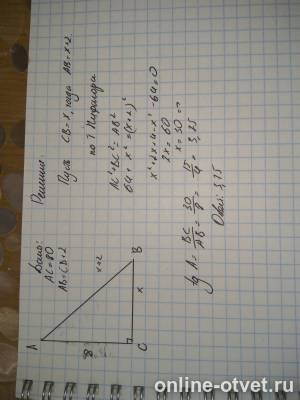 Дано:
AC=80
AB=CB+2
A
x+2
B
8
x
C
Решение
Пусть CB=x, тогда AB=x+2.
по Т Пифагора
AC²+BC²=AB²
64+x²=(x+2)²
x²+2x+4-x²-64=0
2x=60
x=30
tg A = BC/AB = 30/8 = 15/4 = 3,75
Ответ: 3,75
online-otvet.ru